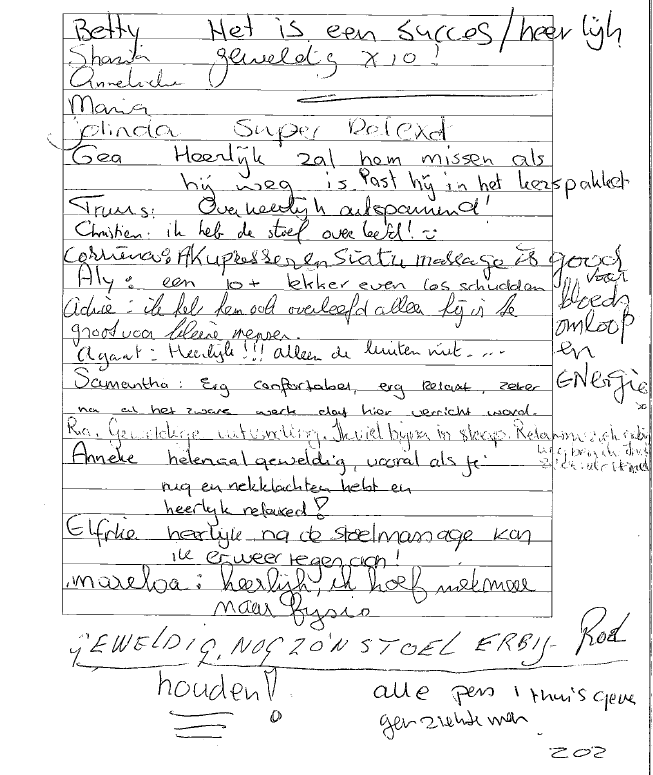 Betty Het is een succes/heerlijk
Sharita geweldig x 10!
Annelieke
Maria
Jolinda Super Relexd
Gea Heerlijk zal hem missen als
hij weg is Past hij in het kerspakket
Truus: Overheerlijk ontspannend!
Christien: ik heb de stoel overleefd!
Corriena: AKupresser en Siatu massage is goed
voor
bloeds
omloop
en
ENergie
Aly: een 10+ lekker even los schudden
Adrie: ik heb hem ook overleefd alleen hij is te
groot voor kleine mensen.
Agaat: Heerlijk!!! alleen de kuiten niet....
Samantha: Erg confortabel, erg Relaxt, zeker
na al het zware werk dat hier verricht word.
Ria. Geweldige uitvinding. Ik viel bijna in slaap.
Anneke helemaal geweldig, vooral als je
rug en nekklachten hebt en
heerlijk relaxed!
Elfrie heerlijk na de stoelmassage kan
ik er weer tegenaan!
mareloa: heerlijk, ik hoef niet meer
naar fysio
GEWELDIG, NOG ZO'N STOEL ERBIJ Rod
houden!
alle pers 1 thuis geve
gen ziekte meer
202